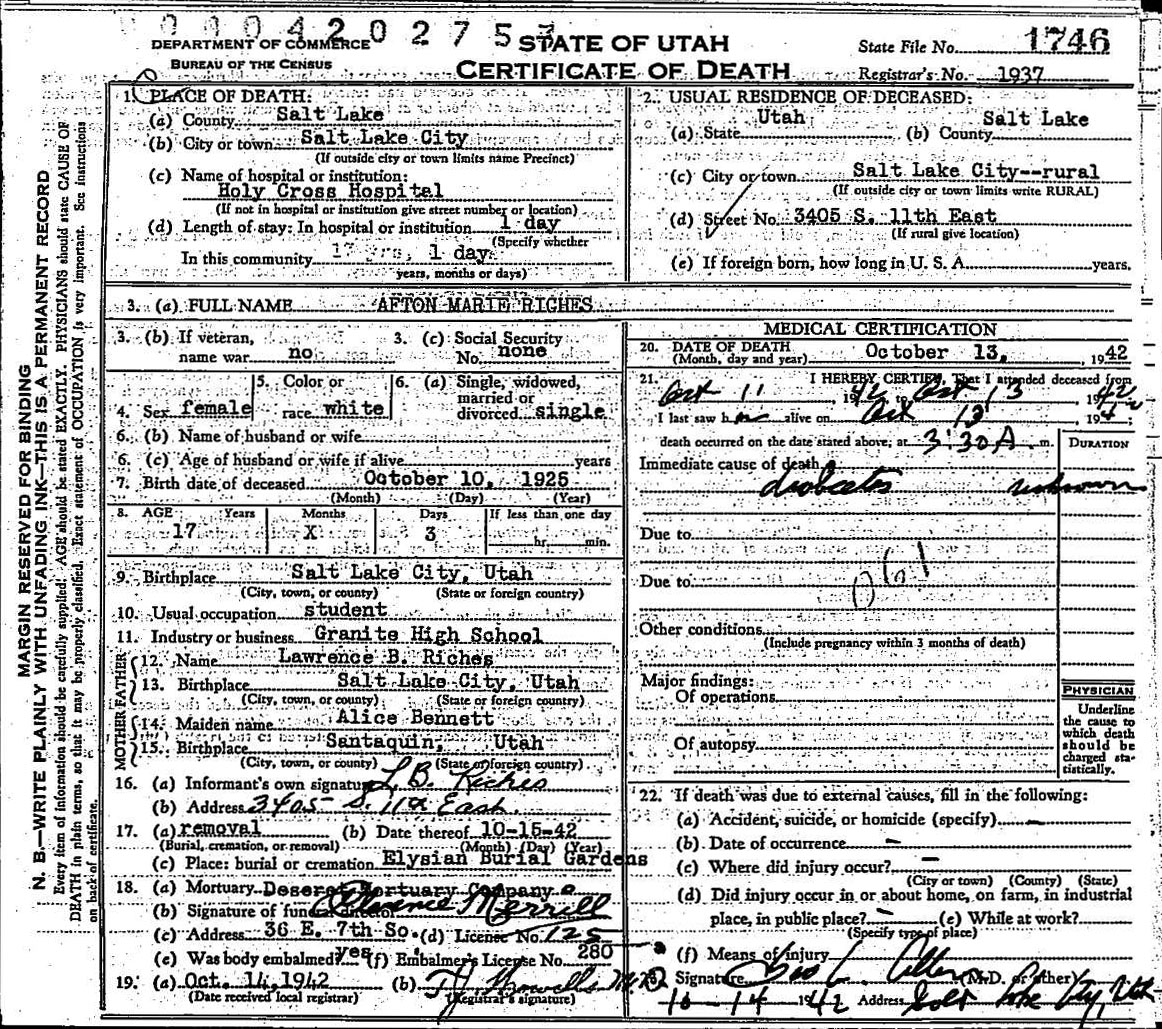 0004202753
DEPARTMENT OF COMMERCE
BUREAU OF THE CENSUS
STATE OF UTAH
CERTIFICATE OF DEATH
State File No. 1746
Registrar's No. 1937
MARGIN RESERVED FOR BINDING
N. B.—WRITE PLAINLY WITH UNFADING INK—THIS IS A PERMANENT RECORD
Every item of information should be carefully supplied. AGE should be stated EXACTLY. PHYSICIANS should state CAUSE OF
DEATH in plain terms, so that it may be properly classified. Exact statement of OCCUPATION is very important. See instructions
on back of certificate.
1. PLACE OF DEATH:
(a) County Salt Lake
(b) City or town Salt Lake City
(If outside city or town limits name Precinct)
(c) Name of hospital or institution:
Holy Cross Hospital
(If not in hospital or institution give street number or location)
(d) Length of stay: In hospital or institution 1 day
(Specify whether
In this community 17 yrs, 1 day
years, months or days)
2. USUAL RESIDENCE OF DECEASED:
(a) State Utah (b) County Salt Lake
(c) City or town Salt Lake City--rural
(If outside city or town limits write RURAL)
(d) Street No. 3405 S. 11th East
(If rural give location)
(e) If foreign born, how long in U. S. A. years.
3. (a) FULL NAME AFTON MARIE RICHES
3. (b) If veteran, name war no
3. (c) Social Security No. none
4. Sex female
5. Color or race white
6. (a) Single, widowed, married or divorced single
6. (b) Name of husband or wife
6. (c) Age of husband or wife if alive years
7. Birth date of deceased October 10, 1925
(Month) (Day) (Year)
8. AGE Years Months Days If less than one day
17 X 3 hr. min.
9. Birthplace Salt Lake City, Utah
(City, town, or county) (State or foreign country)
10. Usual occupation student
11. Industry or business Granite High School
FATHER
12. Name Lawrence B. Riches
13. Birthplace Salt Lake City, Utah
(City, town, or county) (State or foreign country)
MOTHER
14. Maiden name Alice Bennett
15. Birthplace Santaquin, Utah
(City, town, or county) (State or foreign country)
16. (a) Informant's own signature L. B. Riches
(b) Address 3405 S. 11th East
17. (a) removal (b) Date thereof 10-15-42
(Burial, cremation, or removal) (Month) (Day) (Year)
(c) Place: burial or cremation Elysian Burial Gardens
18. (a) Mortuary Deseret Mortuary Company
(b) Signature of funeral director Clarence Merrill
(c) Address 36 E. 7th So. (d) License No. 125
(e) Was body embalmed? yes (f) Embalmer's License No. 280
19. (a) Oct. 14, 1942 (b)
(Date received local registrar) (Registrar's signature)
MEDICAL CERTIFICATION
20. DATE OF DEATH October 13, 1942
(Month, day and year)
21. I HEREBY CERTIFY, That I attended deceased from
Oct 11 1942 to Oct 13 1942
I last saw her alive on Oct 13 194
death occurred on the date stated above, at 3:30 A m.
DURATION
Immediate cause of death
diabetes unknown
Due to
Due to
061
Other conditions
(Include pregnancy within 3 months of death)
Major findings:
Of operations
Of autopsy
PHYSICIAN
Underline
the cause to
which death
should be
charged sta-
tistically.
22. If death was due to external causes, fill in the following:
(a) Accident, suicide, or homicide (specify) –
(b) Date of occurrence –
(c) Where did injury occur? –
(City or town) (County) (State)
(d) Did injury occur in or about home, on farm, in industrial
place, in public place? – (e) While at work?
(Specify type of place)
(f) Means of injury
23. Signature Geo L. Allen (M.D. or other)
10-14 1942 Address Salt Lake City, Utah